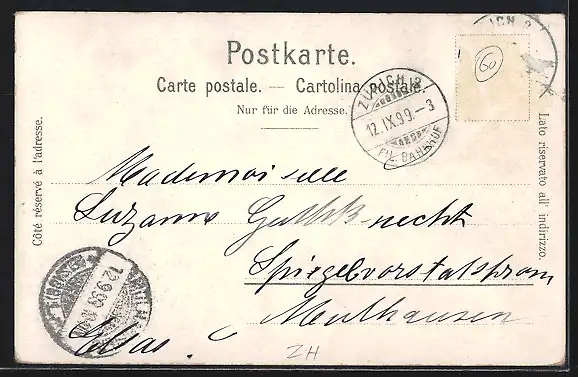 Postkarte.
Carte postale. — Cartolina postale.
Nur für die Adresse.
Côté réservé à l'adresse.
Lato riservato all' indirizzo.
ZÜRICH 12
12.IX.99.-3
FIL. BAHNHOF
60
Mademoiselle
Suzanne Guthknecht
Mulhausen
Elsas.
12.9.99
ZH